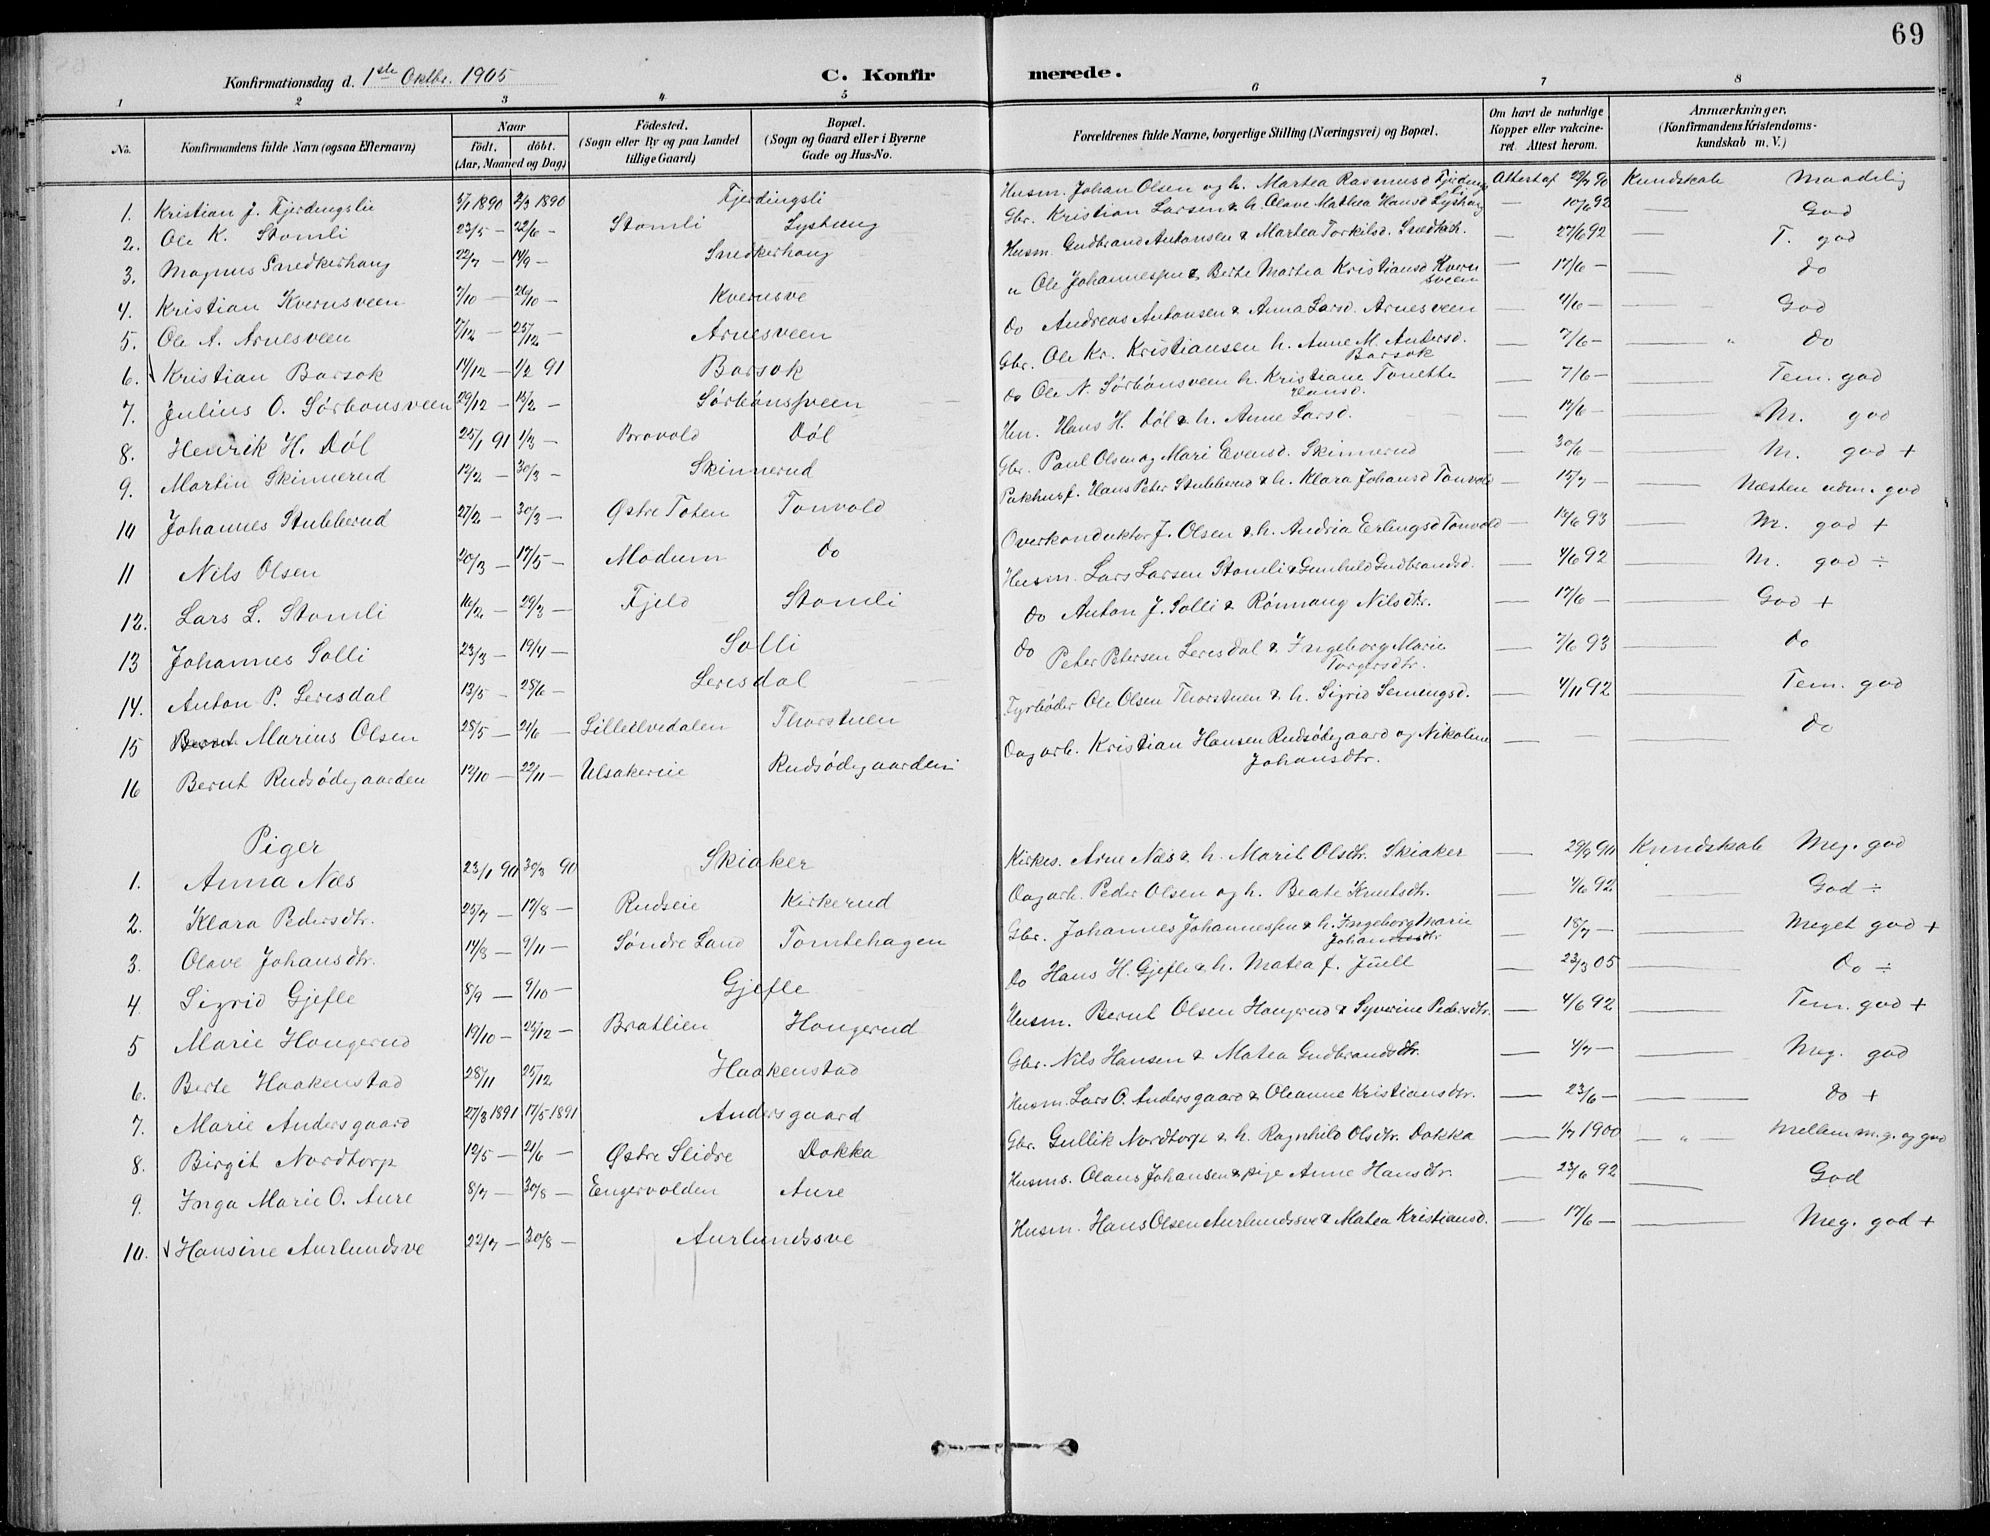 69
Konfirmationsdag d. 1ste Oktbr. 1905 C. Konfirmerede.
1 2 3 4 5 6 7 8
No. Konfirmandens fulde Navn (ogsaa Efternavn) Naar födt. döbt. (Aar, Maaned og Dag) Födested. (Sogn eller By og paa Landet tillige Gaard) Bopæl. (Sogn og Gaard eller i Byerne Gade og Hus-No. Forældrenes fulde Navne, borgerlige Stilling (Næringsvei) og Bopæl. Om havt de naturlige Kopper eller vakcineret. Attest herom. Anmærkninger. (Konfirmandens Kristendomskundskab m. V.)
1. Kristian J. Fjerdingslie 1890 2/3 1890 Fjerdingsli Husm. Johan Olsen og h. Martea Rasmusd Fjerdingsli Attest af 90 Kundskab Maadelig
2. Ole K. Stomli 23/5 — 22/6 — Stomli Lyshaug Gbr. Kristian Larsen & h. Olave Mathea Hansd Lyshaug — 10/6 92 — God
3. Magnus Snedkerhaug 22/7 — 14/9 — Snedkerhaug Husm. Gudbrand Antonsen & Martea Torkilsd. Snedkh. — 27/6 92 — T. god
4. Kristian Kvernsveen 7/10 — 26/10 — Kvernsve " Ole Johannessen & Berte Martea Kristiansd Kvernsveen — 17/6 — — do
5. Ole A. Arnesveen 7/12 — 25/12 — Arnesveen do Andreas Antonsen & Anna Larsd. Arnesveen — 4/6 — — God
6. Kristian Barsok 14/12 — 1/2 91 Barsok Gbr. Ole Kr. Kristiansen h. Anne M. Andersd. Barsok — 7/6 — — " do
7. Julius O. Sørbønsveen 29/12 — 15/2 — Sørbønsveen do Ole N. Sørbønsveen h. Kristiane Tonette Hansd. — 7/6 — — Tem. god
8. Henrik H. Døl 25/1 91 1/3 — Brovold Døl Hans H. Døl & h. Anne Larsd. — — M. god
9. Martin Skinnerud 12/2 — 30/3 — Skinnerud Gbr. Paul Olsen og Mari Evensd. Skinnerud — 30/6 — M. god +
10 Johannes Stubberud 27/2 — 30/3 — Østre Toten Tonvold Pakhusf. Hans Peter Stubberud & h. Klara Johansd Tonvold — 15/7 — — Næsten udm. god
11 Nils Olsen 20/3 — 17/5 — Modum do Overkonduktør J. Olsen & h. Andria Erlingsd Tonvold — 93 — M. god +
12. Lars L. Stomli 16/2 — 29/3 — Fjeld Stomli Husm. Lars Larsen Stomli & Gunhild Gudbrandsd. — 4/6 92 — M. god ÷
13 Johannes Solli 23/3 — 19/4 — Solli do Anton J. Solli & Rönnaug Nilsdtr. — 17/6 — — God +
14. Anton P. Leresdal 13/5 — 28/6 — Leresdal do Peter Petersen Leresdal & Ingeborg Marie Torgersdtr. — 7/6 93 — do
15 Marius Olsen 28/5 — 21/6 — Lilleelvedalen Thorstuen Fyrbøder Ole Olsen Thorstuen & h. Sigrid Semingsd. — 4/11 92 — Tem. god
16 Bernt Rudsødegaarden 12/10 — 22/11 — Ulsakereie Rudsødegaarden Dagarb. Kristian Hansen Rudsødegaard og Nikoline Johansdtr. — — do
Piger
1. Anna Næs 23/1 90 30/3 90 Skiaker Kirkes. Arne Næs & h. Marit Olsdtr. Skiaker — 29/7 90 Kundskab Meg. god
2. Klara Pedersdtr. 25/7 — 17/8 — Rudseie Kirkerud Dagarb. Peder Olsen og h. Beate Knutsdtr. — 4/6 92 — God ÷
3. Olave Johansdtr. 14/8 — 9/11 — Søndre Land Tomtehagen Gbr. Johannes Johannessen & h. Ingeborg Marie Johannesdtr — 18/7 — — Meget god +
4 Sigrid Gjefle 8/9 — 9/10 — Gjefle do Hans H. Gjefle & h. Matea f. Juell — 23/3 05 — do ÷
5 Marie Haugerud 19/10 — 26/12 — Bratlien Haugerud Husm. Bernt Olsen Haugerud & Syverine Pedersdtr. — 4/6 92 — Tem. god +
6. Berte Haakenstad 28/11 25/12 Haakenstad Gbr. Nils Hansen & Matea Gudbrandsdtr. — 4/7 — — Meg. god
7. Marie Andersgaard 27/3 1891 17/5 1891 Andersgaard Husm. Lars O. Andersgaard & Oleanne Kristiansdtr. — 23/6 — — do +
8. Birgit Nordtorp 12/5 — 21/6 — Østre Slidre Dokka Gbr. Gullik Nordtorp & h. Ragnhild Olsdtr. Dokka — 1/7 1900 — " Mellem m. g. og god
9. Inga Marie O. Aure 8/7 — 30/8 — Engervolden Aure Husms. Olaus Johansen & pige Anne Hansdtr. — 23/6 92 — God
10. Hansine Aurlundsve 22/7 — 30/8 — Aurlundssve Husm. Hans Olsen Aurlundssve & Matea Kristiansd. — 17/6 — — Meg. god +